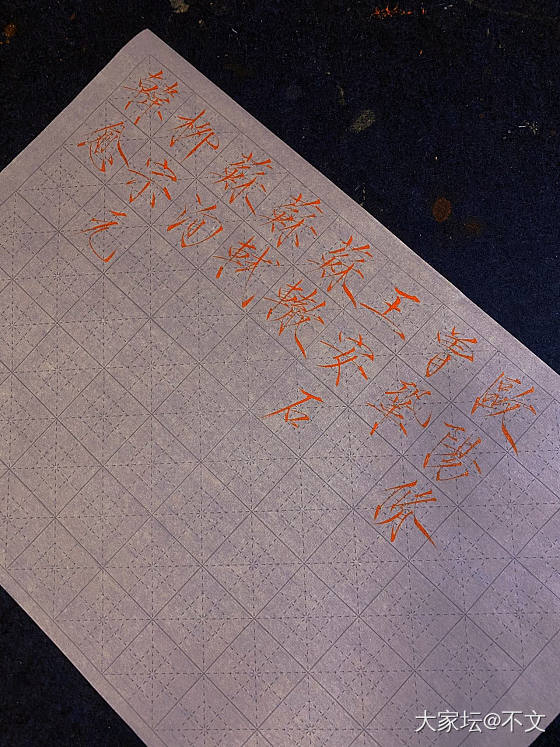 歐陽修
曾鞏
王安石
蘇轍
蘇軾
蘇洵
柳宗元
韓愈
大家坛@不文